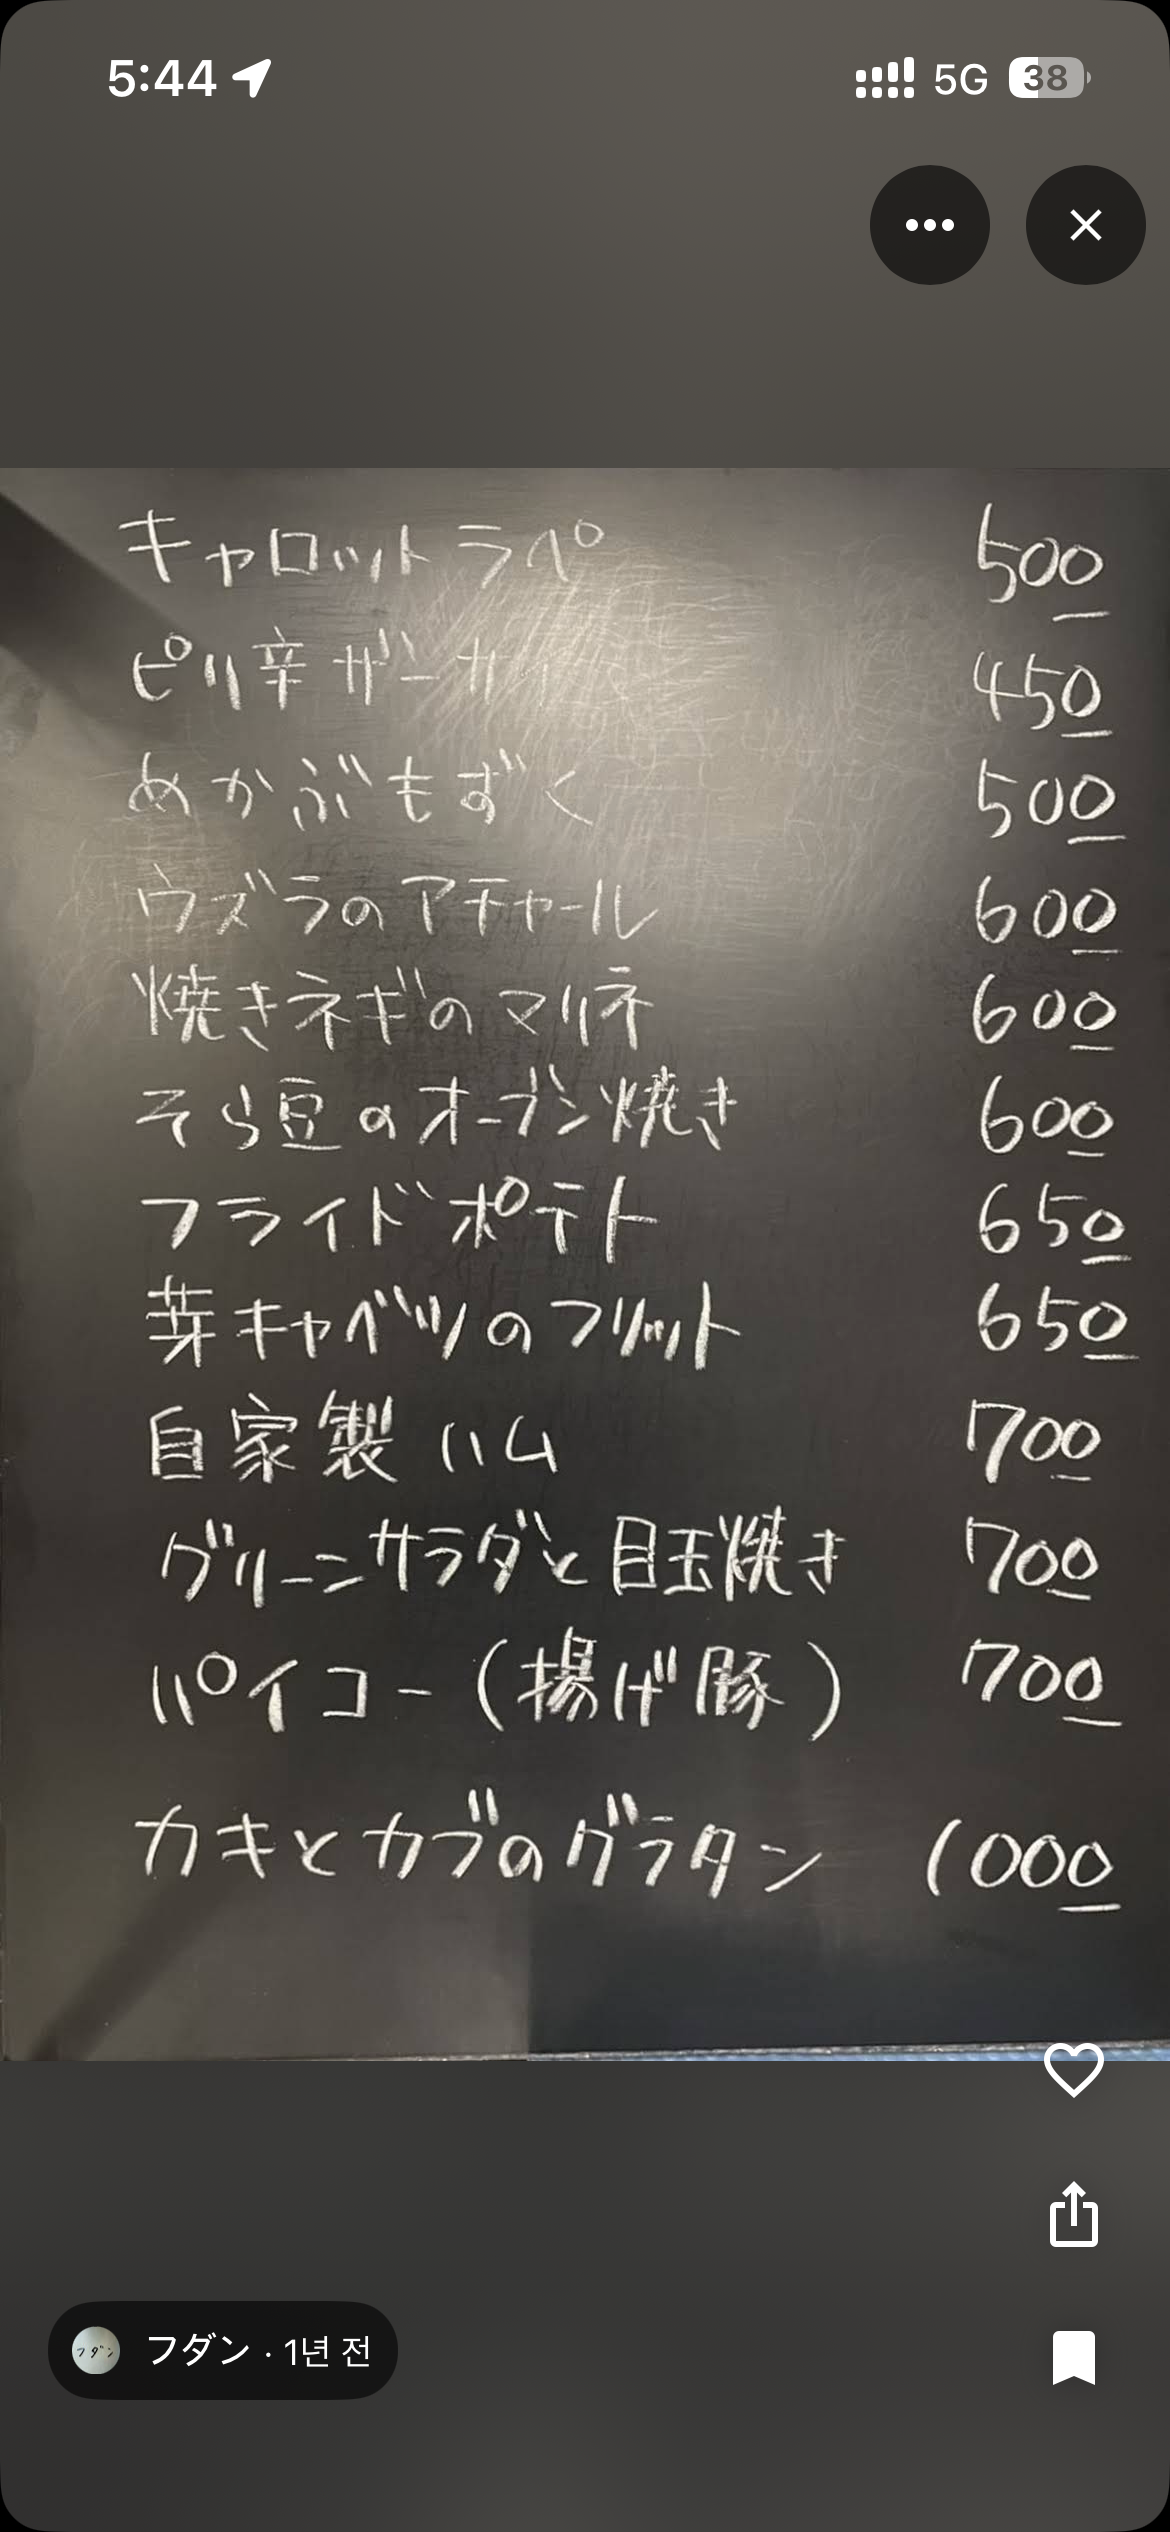 5:44 5G 38
キャロットラペ 500
ピリ辛ザーサイ 450
めかぶもずく 500
ウズラのアチャール 600
焼きネギのマリネ 600
そら豆のオーブン焼き 600
フライドポテト 650
芽キャベツのフリット 650
自家製ハム 700
グリーンサラダと目玉焼き 700
パイコー(揚げ豚) 700
カキとカブのグラタン 1000
フダン フダン · 1년 전